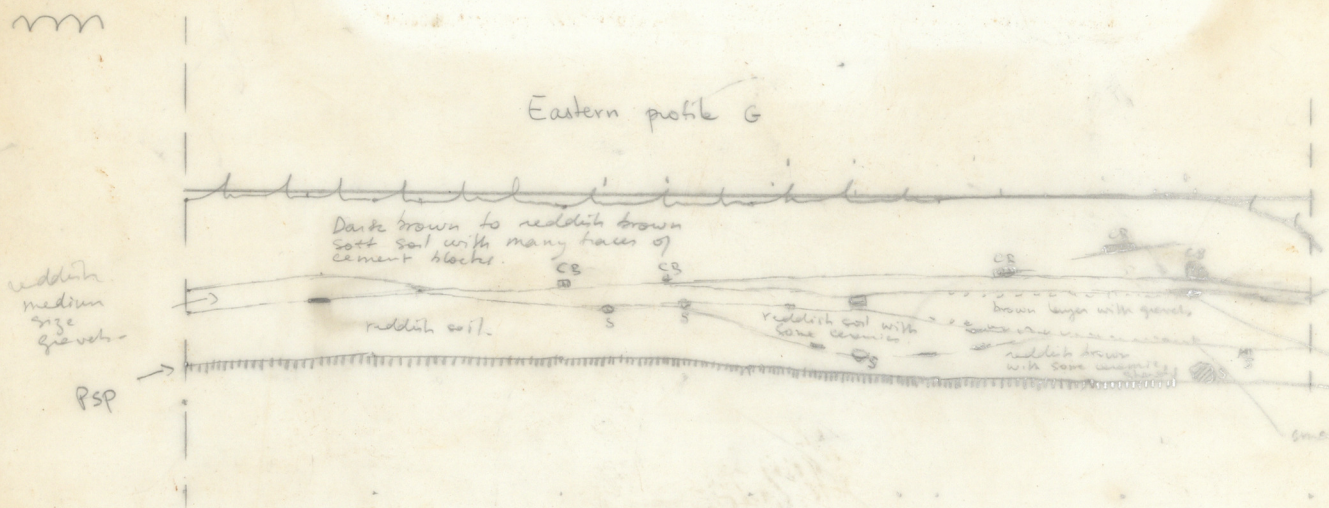 Eastern profile G
Dark brown to reddish brown
soft soil with many traces of
cement blocks.
CB
CB
CB
CB
CB
reddish
medium
size
gravels.
reddish soil.
S
S
S
S
reddish soil with
some ceramics
brown layer with gravels
reddish brown
with some
PSP